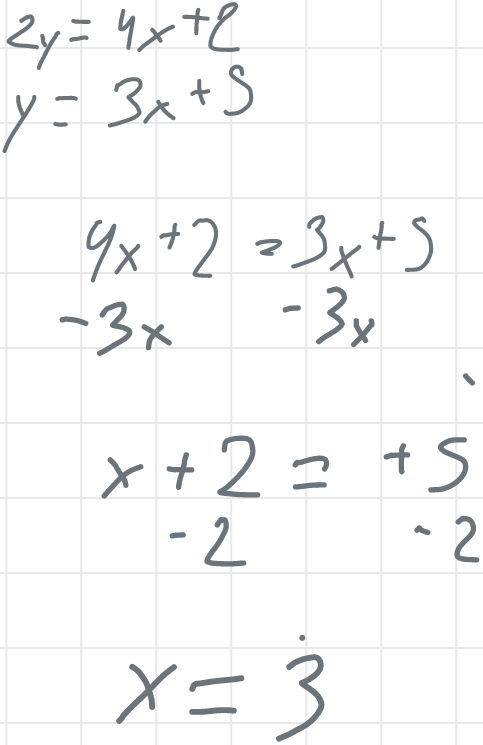 2y = 4x + 2
y = 3x + 5
4x + 2 = 3x + 5
-3x -3x
x + 2 = +5
-2 -2
x = 3